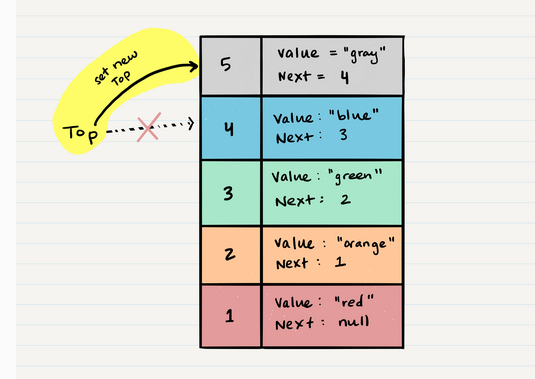 set new
Top
Top
5
value = "gray"
Next = 4
4
Value: "blue"
Next: 3
3
Value: "green"
Next: 2
2
Value: "orange"
Next: 1
1
Value: "red"
Next: null